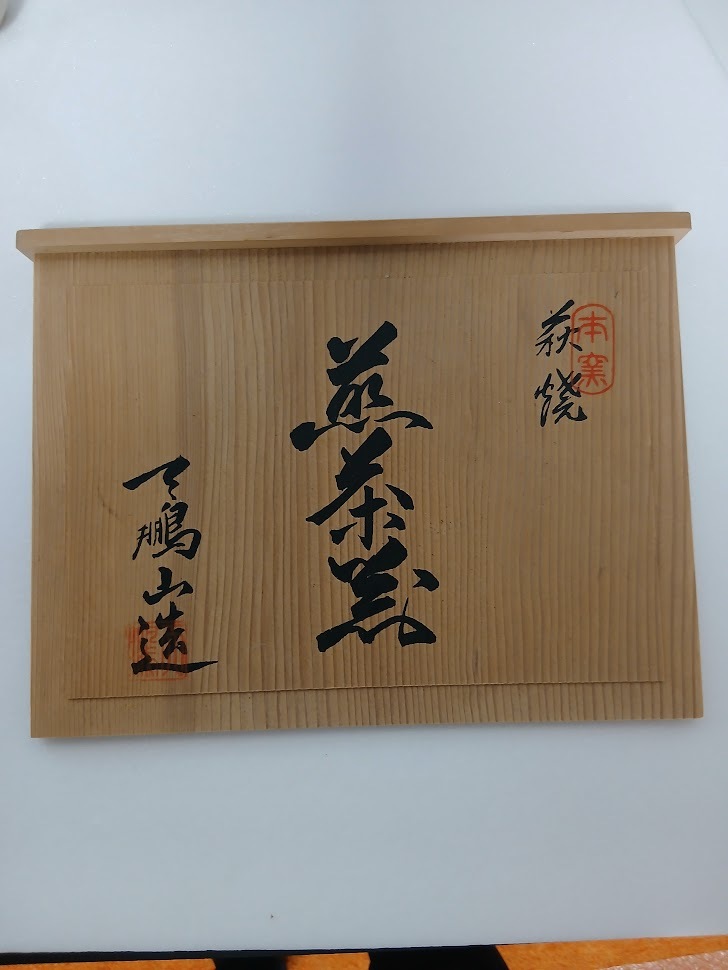 本窯
萩焼
煎茶器
天鵬山造